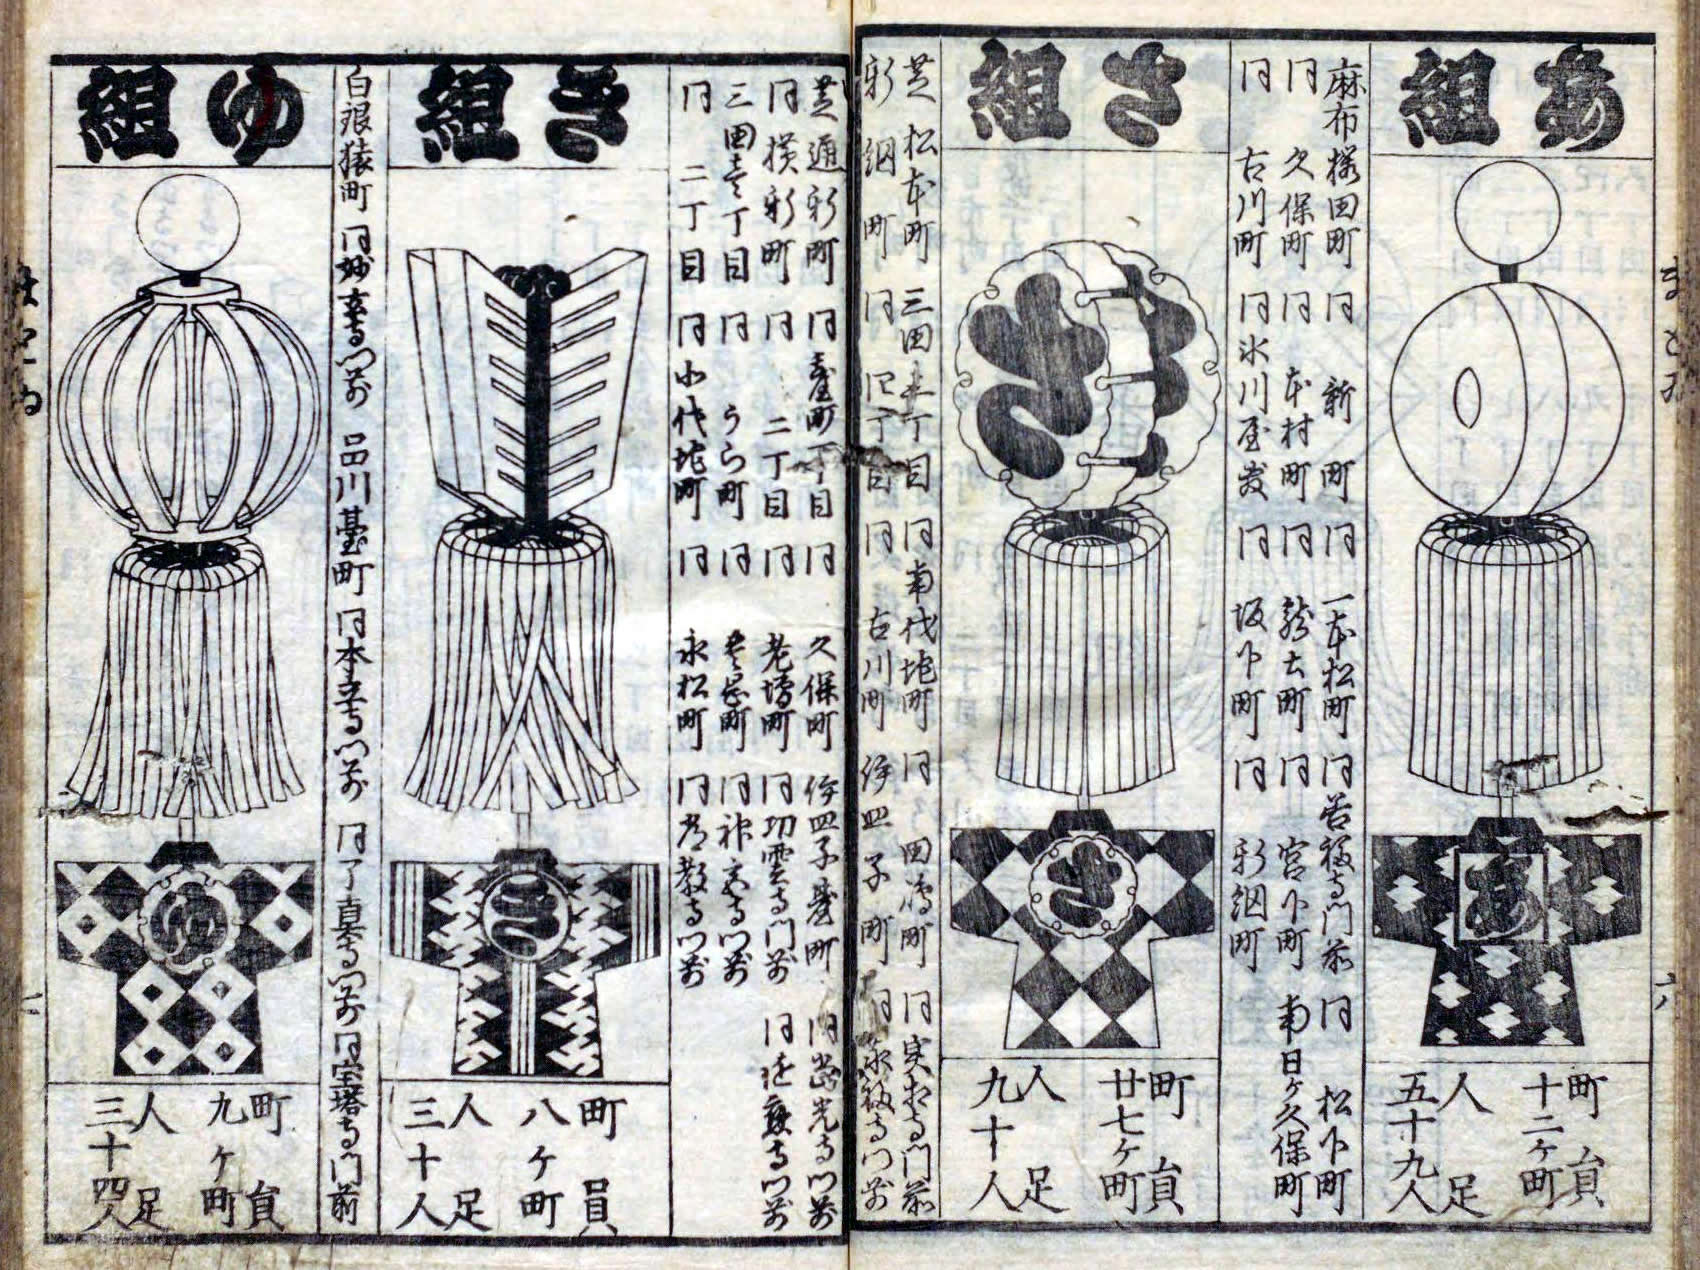 あ組
麻布桜田町 同 新町 同 一本松町 同 善福寺門前 同 松下町
同 久保町 同 本村町 同 龍土町 同 宮下町 南日ヶ久保町
同 古川町 同 氷川屋敷 同 坂下町 同 新網町
町員
十二ヶ町
人足
五十九人
さ組
町員
廿七ヶ町
人足
九十人
芝 松本町 三田三丁目 同 南代地町 同 田嶋町 同 実相寺門前
新網町 同 四丁目 同 古川町 伊皿子町 同
芝通新町 同 臺町一丁目 同 久保町 伊皿子臺町
同 横新町 同 二丁目 同 老増町 同 功雲寺門前
三田壱丁目 同 うら町 同
同 二丁目 同 小代地町 同 永松町 同
き組
町員
八ヶ町
人足
三十人
白銀猿町 同 妙 寺門前 品川臺町 同 本立寺門前 同 了真寺門前 同 宝塔寺門前
ゆ組
町員
九ヶ町
人足
三十四人